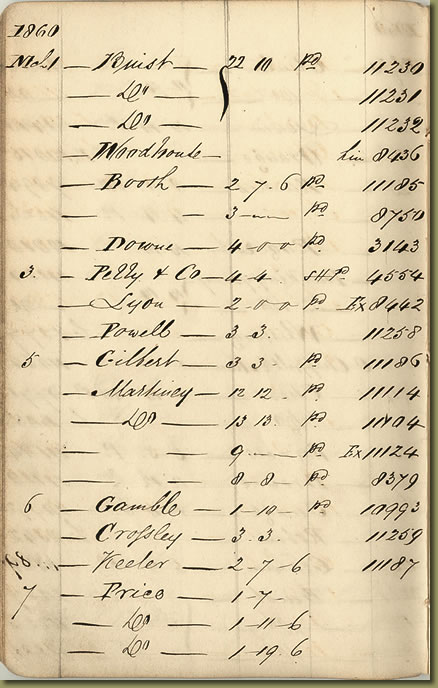 1860
Mch 1 — Buist — 22 10 pd 11230
— Do — 11231
— Do — 11232
— Woodhouse — 8436
— Booth — 2 7. 6 pd 11185
— — 3 — pd 8750
— Downe — 4 - 0 0 pd 3143
3. — Pelly & Co — 4 4. 4554
— Lyon — 2 - 0 0 pd Ex 8442
— Powell — 3 3. 11258
5 — Gilbert — 3 3 - pd 11186
— — 12 12. pd 11114
— Do — 13 13. pd
— — 9 — pd Ex 11124
— — 8 - 8 - pd 8379
6 — Gamble — 1 - 10 - pd 10993
— Crossley — 3. 3. 11259
— Keeler — 2 - 7 - 6 11187
7 — Price — 1 - 7 -
— Do — 1 - 11 - 6
— Do — 1 - 19. 6